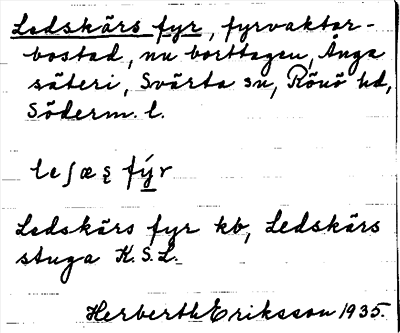 Ledskärs fyr, fyrvaktar-
bostad, nu borttagen, Ånga
säteri, Svärta sn, Rönö hd,
Söderm. l.
le ʃæ ȿ fýr
Ledskärs fyr kb, Ledskärs
stuga K.S.L.
Herberth Eriksson 1935.